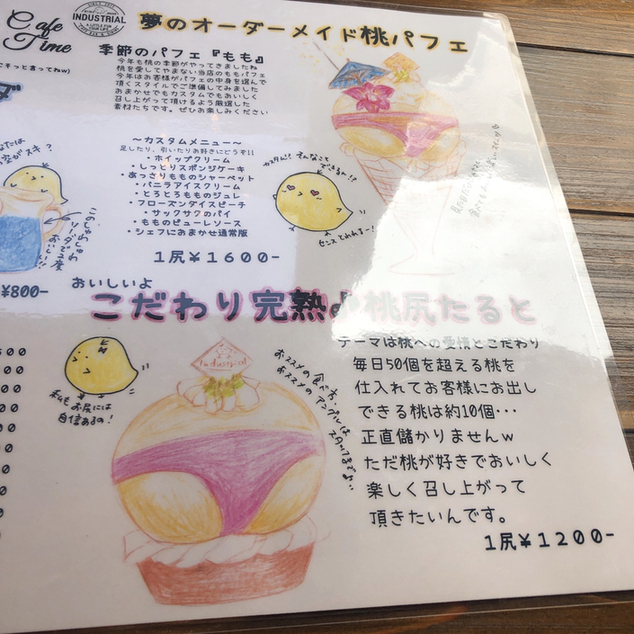 Cafe
Time
INDUSTRIAL
夢のオーダーメイド桃パフェ
季節のパフェ『もも』
今年も桃の季節がやってきましたね
桃を愛してやまない当店のももパフェ
今年はお客様がパフェの中身を選んで
頂くスタイルでご準備してみました
おまかせでもカスタムでもおいしく
召し上がって頂けるよう厳選した
素材たちです。ぜひお楽しみください
～カスタムメニュー～
足したり、引いたりお好きにどうぞ!!
・ホイップクリーム
・しっとりスポンジケーキ
・あっさりももシャーベット
・バニラアイスクリーム
・とろとろもものジュレ
・フローズンダイスピーチ
・サックサクのパイ
・もものピューレソース
・シェフにおまかせ通常版
1尻¥1600-
カスタム!! そんなこと
できるの〜!?
センスとわれる〜!!
¥800-
おいしいよ
こだわり完熟♪桃尻たると
私もお尻には
自信あるの!
Industrial
おススメの食べ方
おススメのアングルは
テーマは桃への愛情とこだわり
毎日50個を超える桃を
仕入れてお客様にお出し
できる桃は約10個…
正直儲かりませんw
ただ桃が好きでおいしく
楽しく召し上がって
頂きたいんです。
1尻¥1200-